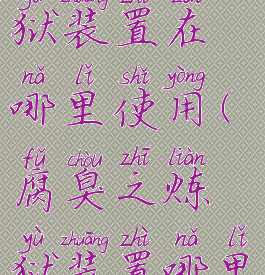 yù zhuāng zhì zài
狱装置在
nǎ lǐ shǐ yòng
哪里使用(
fǔ chòu zhī liàn
腐臭之炼
yù zhuāng zhì nǎ lǐ
狱装置哪里